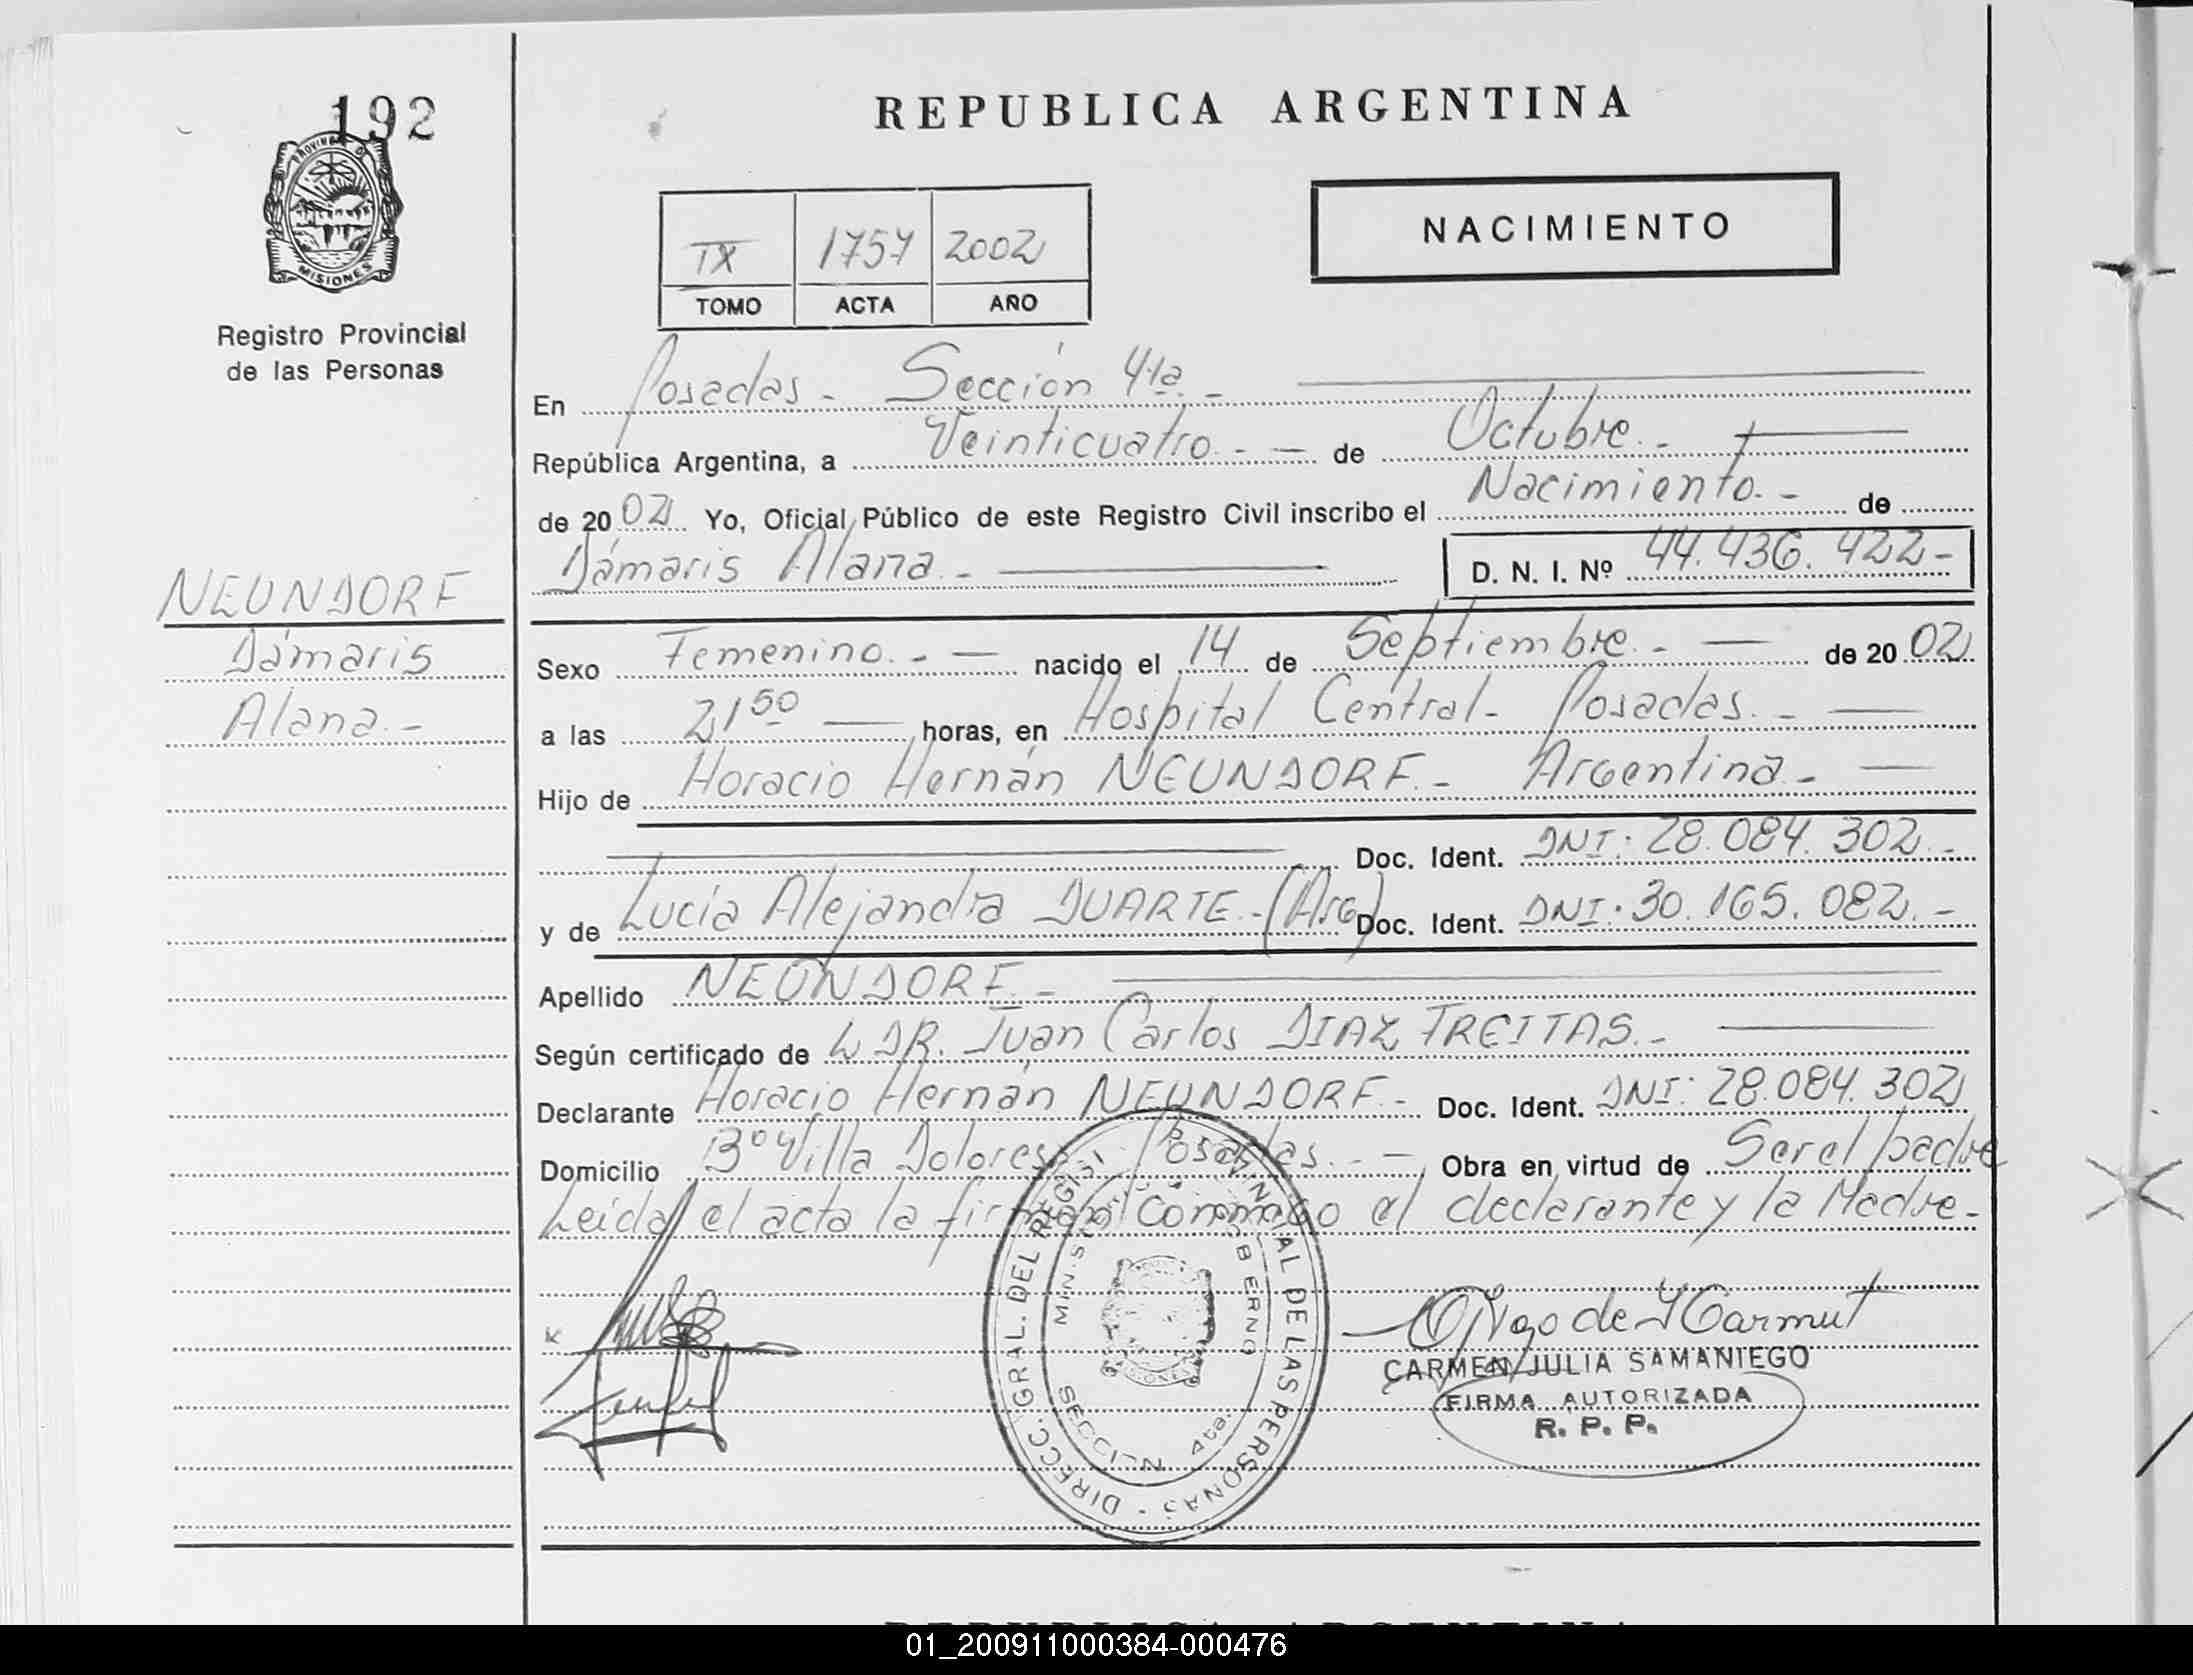 192
PROVINCIA D
MISIONES
Registro Provincial
de las Personas
NEUNDORF
Dámaris
Alana.-
REPUBLICA ARGENTINA
NACIMIENTO
IX 1757 2002
TOMO ACTA AÑO
En Posadas - Sección 4ta.-
República Argentina, a Veinticuatro.- de Octubre.-
de 2002 Yo, Oficial Público de este Registro Civil inscribo el Nacimiento.- de
Dámaris Alana.- D. N. I. Nº 44.436.422-
Sexo Femenino.- nacido el 14 de Septiembre.- de 2002
a las 21 50 horas, en Hospital Central- Posadas.-
Hijo de Horacio Hernán NEUNDORF.- Argentina.-
Doc. Ident. DNI: 28.084.302.-
y de Lucía Alejandra DUARTE.-(Arg) Doc. Ident. DNI: 30.165.082.-
Apellido NEUNDORF.-
Según certificado de DR. Juan Carlos DIAZ FREITAS.-
Declarante Horacio Hernán NEUNDORF.- Doc. Ident. DNI: 28.084.302
Domicilio Bº Villa Dolores - Posadas.- Obra en virtud de Ser el padre
Leída el acta la firman conmigo el declarante y la Madre.-
DIRECC. GRAL. DEL REGIST PROVINCIAL DE LAS PERSONAS
SECCION 4ta.
CARMEN JULIA SAMANIEGO
FIRMA AUTORIZADA
R. P. P.
REPUBLICA ARGENTINA
01_200911000384-000476